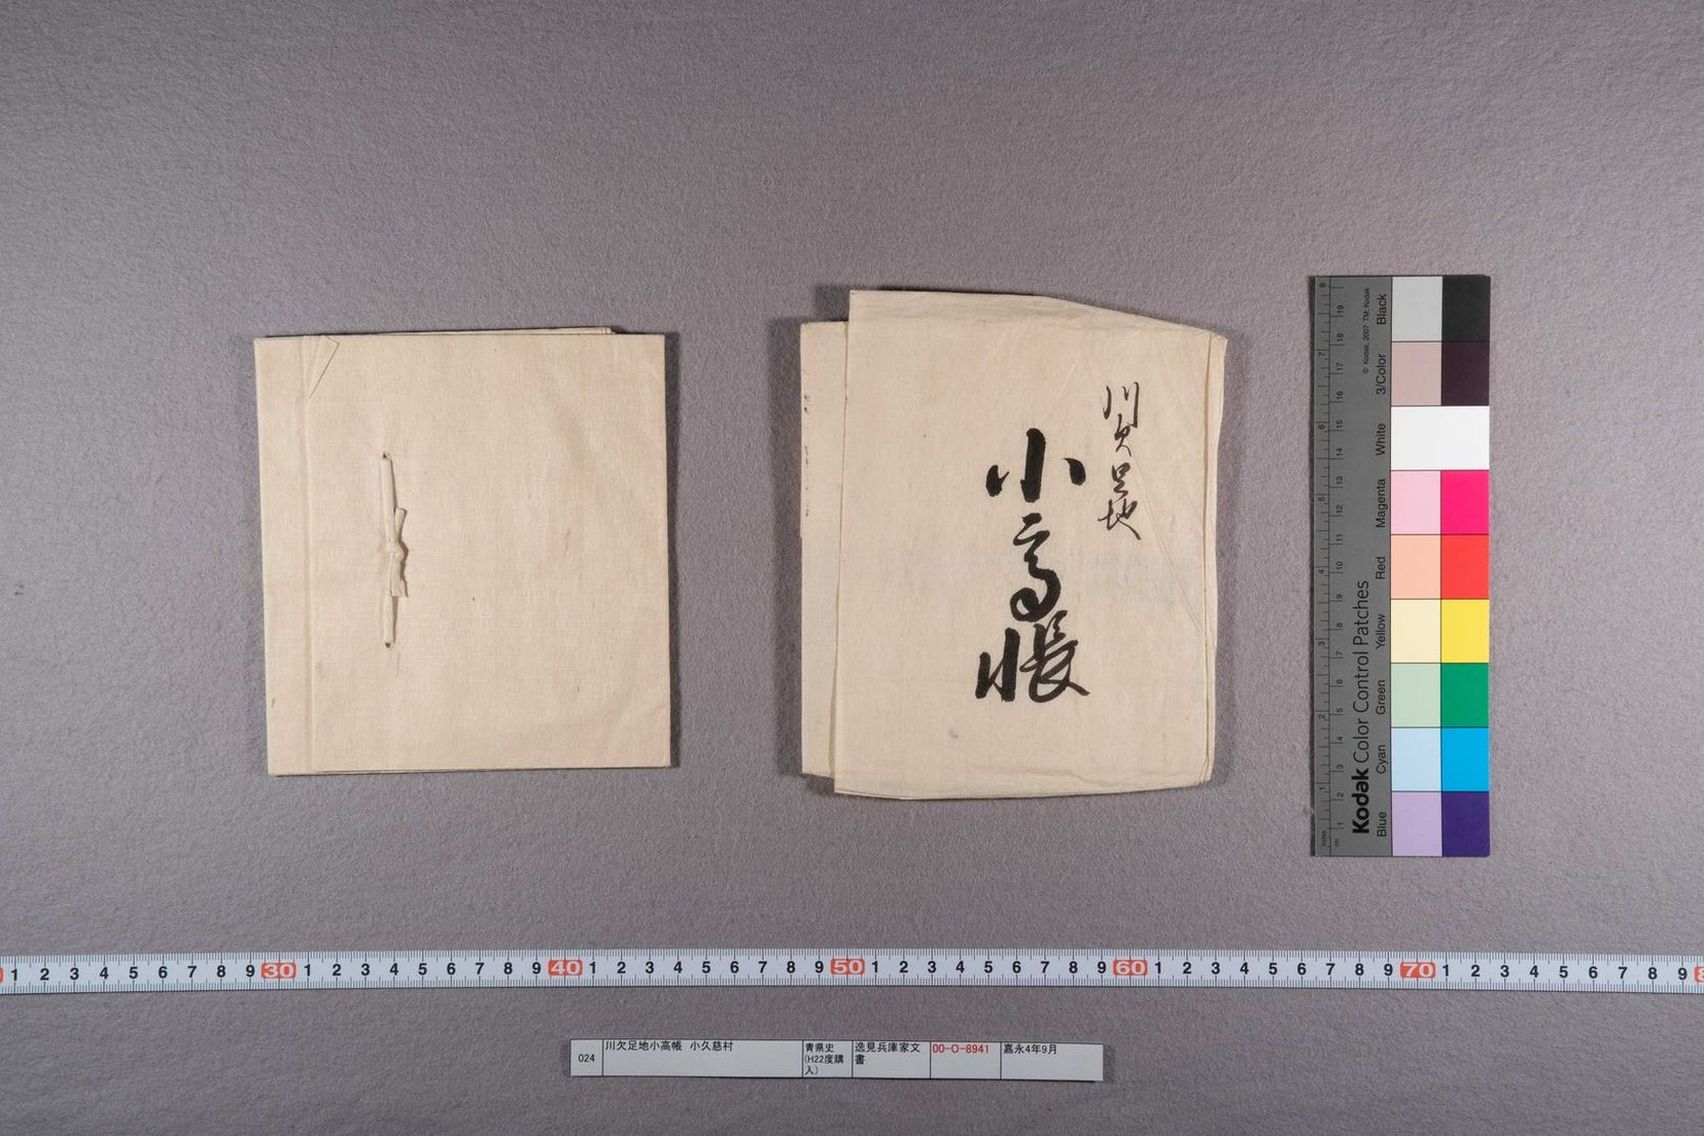 川欠足地
小高帳
© Kodak, 2007 TM: Kodak
Kodak Color Control Patches
Black
3/Color
White
Magenta
Red
Yellow
Green
Cyan
Blue
8 19 18 7 17 16 6 15 14 5 13 12 11 4 10 9 8 3 7 6 2 5 4 3 1 2 1
inches
cm
1 2 3 4 5 6 7 8 9 30 1 2 3 4 5 6 7 8 9 40 1 2 3 4 5 6 7 8 9 50 1 2 3 4 5 6 7 8 9 60 1 2 3 4 5 6 7 8 9 70 1 2 3 4 5 6 7 8 9
024
川欠足地小高帳 小久慈村
青県史
(H22度購
入)
逸見兵庫家文
書
00-O-8941
嘉永4年9月